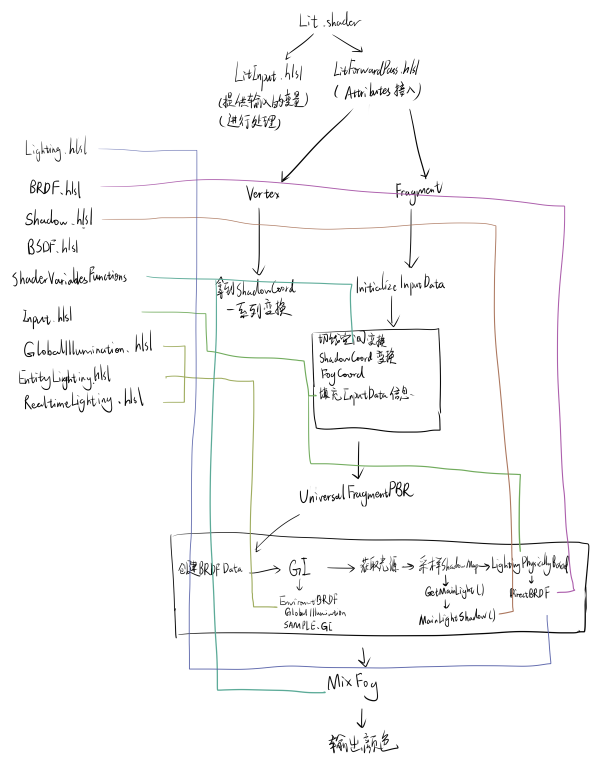 Lit.shader
LitInput.hlsl
(提供输入的变量)
(进行处理)
LitForwardPass.hlsl
(Attributes 接入)
Lighting.hlsl
BRDF.hlsl
Shadow.hlsl
BSDF.hlsl
ShaderVariablesFunctions
Input.hlsl
GlobalIllumination.hlsl
EntityLighting.hlsl
RealtimeLighting.hlsl
Vertex
Fragment
得到ShadowCoord
一系列变换
Initialize InputData
切线空间变换
ShadowCoord 变换
FogCoord
填充InputData 信息
UniversalFragmentPBR
创建BRDF Data
GI
获取光源
采样ShadowMap
LightingPhysicallyBased
EnvironmentBRDF
GlobalIllumination
SAMPLE_GI
GetMainLight()
MainLightShadow()
DirectBRDF
MixFog
输出颜色